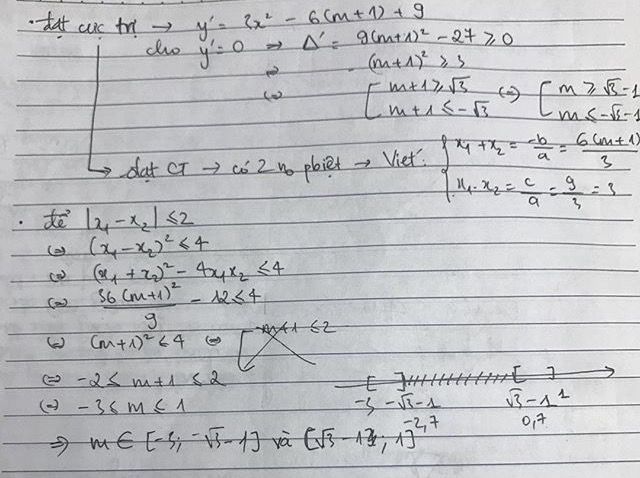 · đạt cực trị → y' = 3x² - 6(m+1) + 9
cho y' = 0 ⇒ Δ' = 9(m+1)² - 27 ≥ 0
⇔ (m+1)² ≥ 3
⇔ [ m+1 ≥ √3 ⇔ [ m ≥ √3 - 1
m+1 ≤ -√3 m ≤ -√3 - 1
→ đạt CT → có 2 no pbiệt → Viet: { x₁ + x₂ = -b/a = 6(m+1)/3
x₁ . x₂ = c/a = 9/3 = 3
· để |x₁ - x₂| ≤ 2
⇔ (x₁ - x₂)² ≤ 4
⇔ (x₁ + x₂)² - 4x₁x₂ ≤ 4
⇔ 36(m+1)²/9 - 12 ≤ 4
⇔ (m+1)² ≤ 4 ⇔ [ m+1 ≤ 2
⇔ -2 ≤ m+1 ≤ 2
⇔ -3 ≤ m ≤ 1
[ ] [ ]
-3 -√3-1 √3-1 1
-2,7 0,7
⇒ m ∈ [-3; -√3-1] và [√3-1; 1]